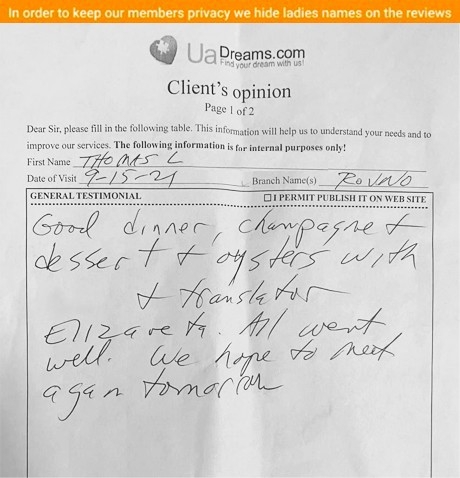 In order to keep our members privacy we hide ladies names on the reviews
UaDreams.com
Find your dream with us!
Client's opinion
Page 1 of 2
Dear Sir, please fill in the following table. This information will help us to understand your needs and to
improve our services. The following information is for internal purposes only!
First Name THOMAS L
Date of Visit 9-15-21 Branch Name(s) ROVNO
GENERAL TESTIMONIAL ☐ I PERMIT PUBLISH IT ON WEB SITE
Good dinner, champagne +
dessert + oysters with
+ translator
Elizaveta. All went
well. We hope to meet
again tomorrow